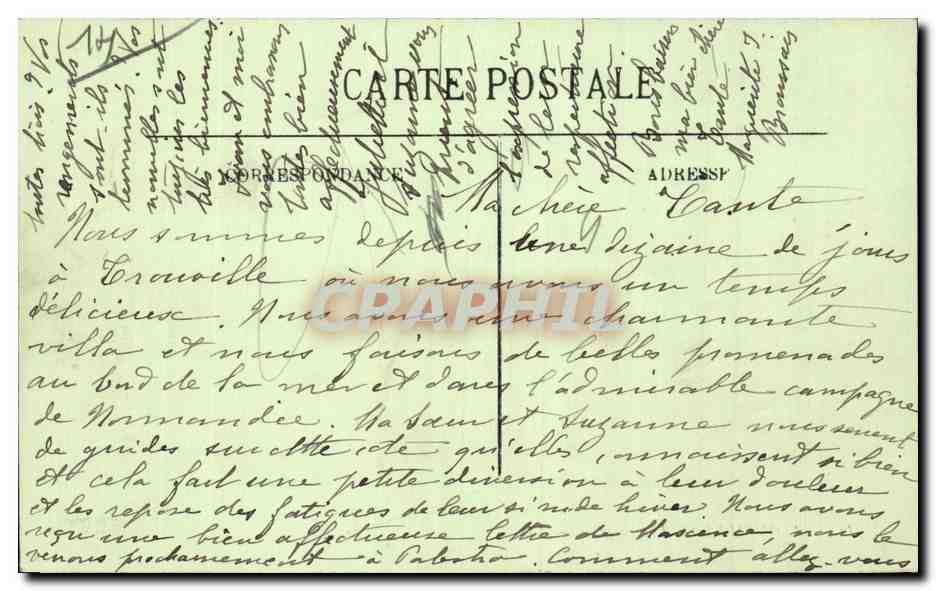 17
CARTE POSTALE
CORRESPONDANCE
ADRESSE
Ma chère Tante
Nous sommes depuis une dizaine de jours
à Trouville où nous avons un temps
délicieux. Nous avons une charmante
villa et nous faisons de belles promenades
au bord de la mer et dans l'admirable campagne
de Normandie. Ma soeur et Suzanne nous servent
de guides sur cette côte qu'elles connaissent si bien
et cela fait une petite diversion à leur douleur
et les repose des fatigues de leur si rude hiver. Nous avons
reçu une bien affectueuse lettre de nous le
prochainement à Comment allez-vous
toutes trois? Vos
rangements
sont-ils
terminés, Vos
nouvelles sont
toujours les
très bienvenues.
et moi
vous embrassons
toutes bien
affectueusement
Suzanne vous
prient
d'agréer
l'expression
de leur
respectueuse
affection.
Bons baisers
ma bien chère
Tante
CRAPHIL